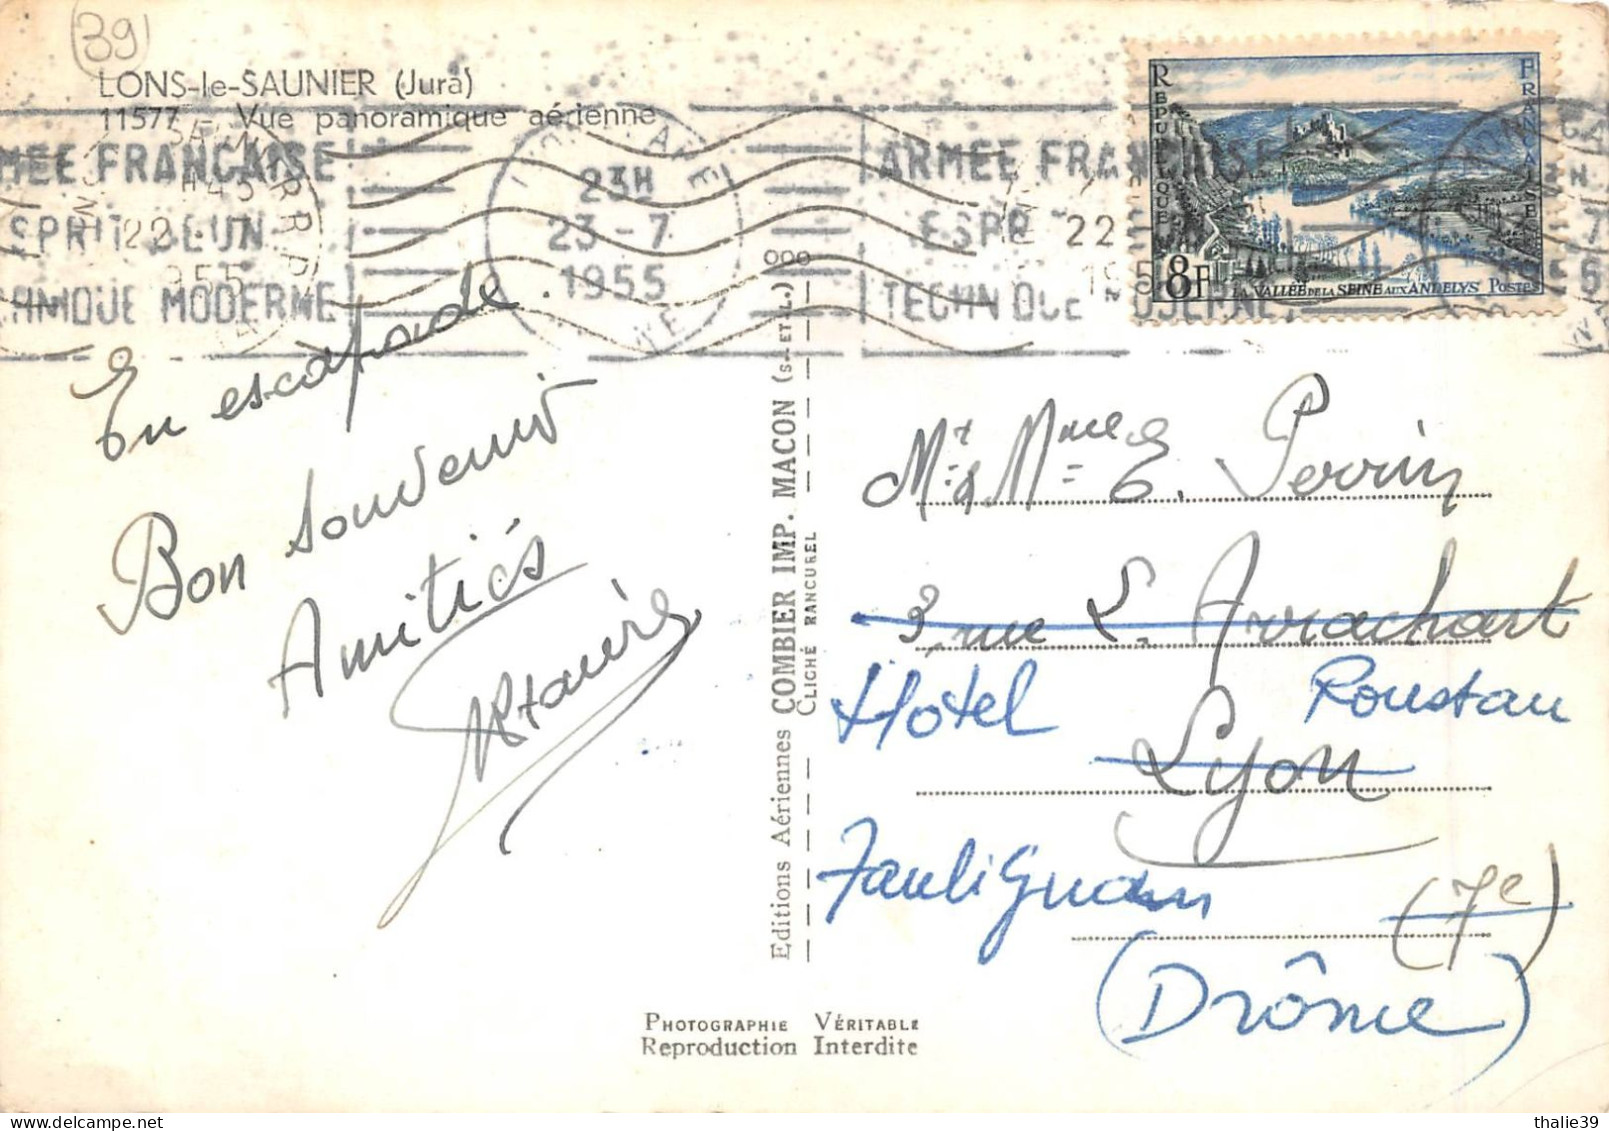 39
LONS-le-SAUNIER (Jura)
11577 - Vue panoramique aérienne
MEE FRANÇAISE
SPRIT JEUN
HNIQUE MODERNE
22 - 7
1955
23H
23 - 7
1955
ARMEE FRANÇAISE
ESPR
TECHNIQUE
22
RÉPUBLIQUE FRANÇAISE
8F
LA VALLÉE DE LA SEINE AUX ANDELYS POSTES
En escapade.
Bon souvenir
Amitiés
Editions Aériennes COMBIER IMP. MACON (S.-ET-L.)
CLICHÉ RANCUREL
Mr & Mme E. Perrin
3 rue L. Arrachart
Hôtel Roustan
Lyon
Taulignan (7e)
(Drôme)
PHOTOGRAPHIE VÉRITABLE
Reproduction Interdite
thalie39